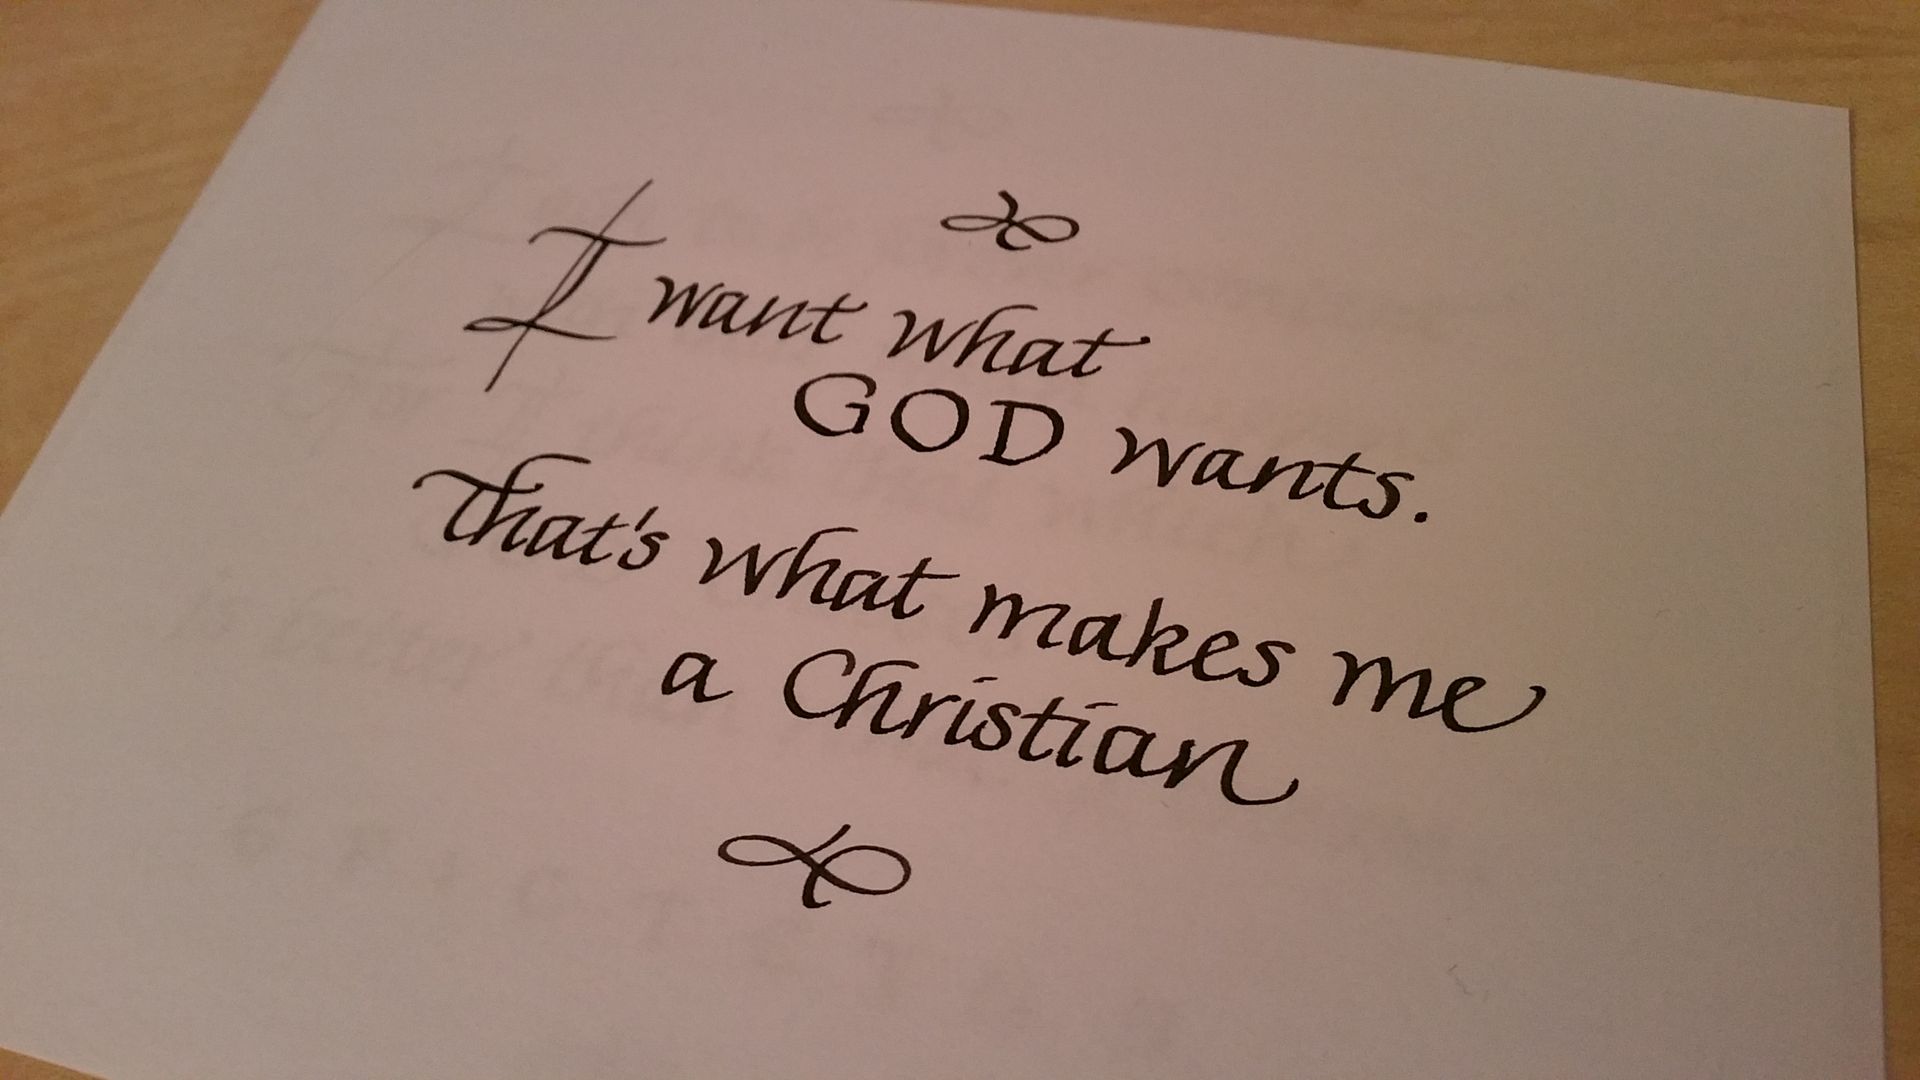 I want what
GOD wants.
That's what makes me
a Christian